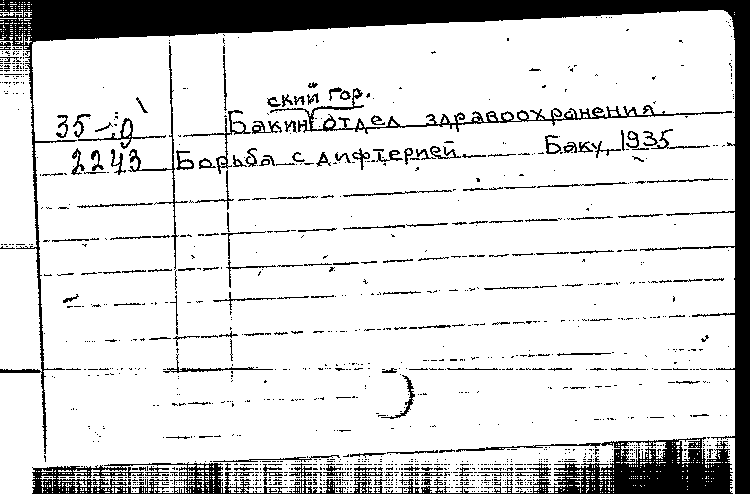 ский гор.
35-0 Бакин отдел здравоохранения.
2243 Борьба с дифтерией. Баку, 1935